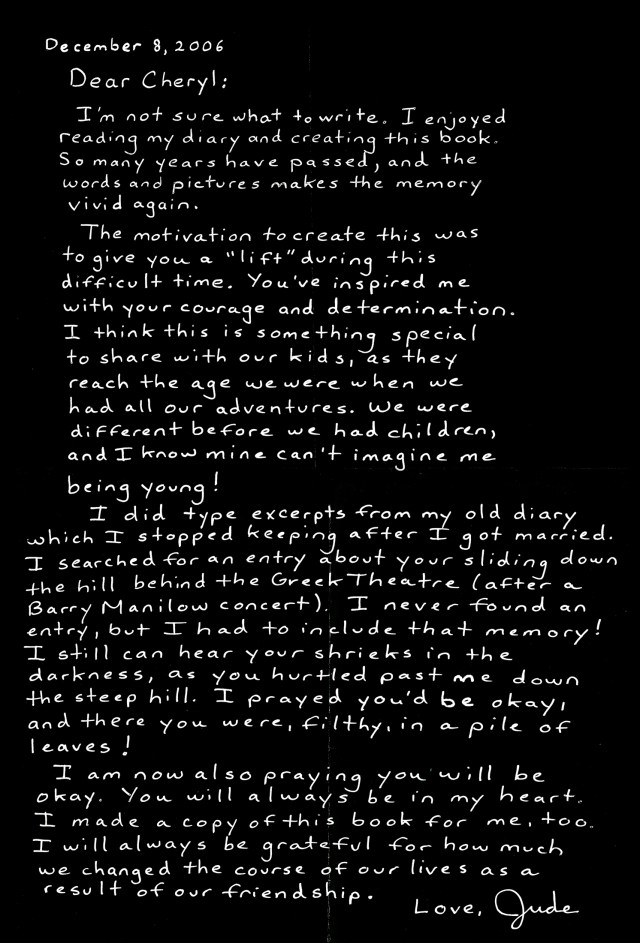 December 8, 2006
Dear Cheryl:
I'm not sure what to write. I enjoyed
reading my diary and creating this book.
So many years have passed, and the
words and pictures makes the memory
vivid again.
The motivation to create this was
to give you a "lift" during this
difficult time. You've inspired me
with your courage and determination.
I think this is something special
to share with our kids, as they
reach the age we were when we
had all our adventures. We were
different before we had children,
and I know mine can't imagine me
being young!
I did type excerpts from my old diary
which I stopped keeping after I got married.
I searched for an entry about your sliding down
the hill behind the Greek Theatre (after a
Barry Manilow concert). I never found an
entry, but I had to include that memory!
I still can hear your shrieks in the
darkness, as you hurtled past me down
the steep hill. I prayed you'd be okay,
and there you were, filthy, in a pile of
leaves!
I am now also praying you will be
okay. You will always be in my heart.
I made a copy of this book for me, too.
I will always be grateful for how much
we changed the course of our lives as a
result of our friendship.
Love, Jude